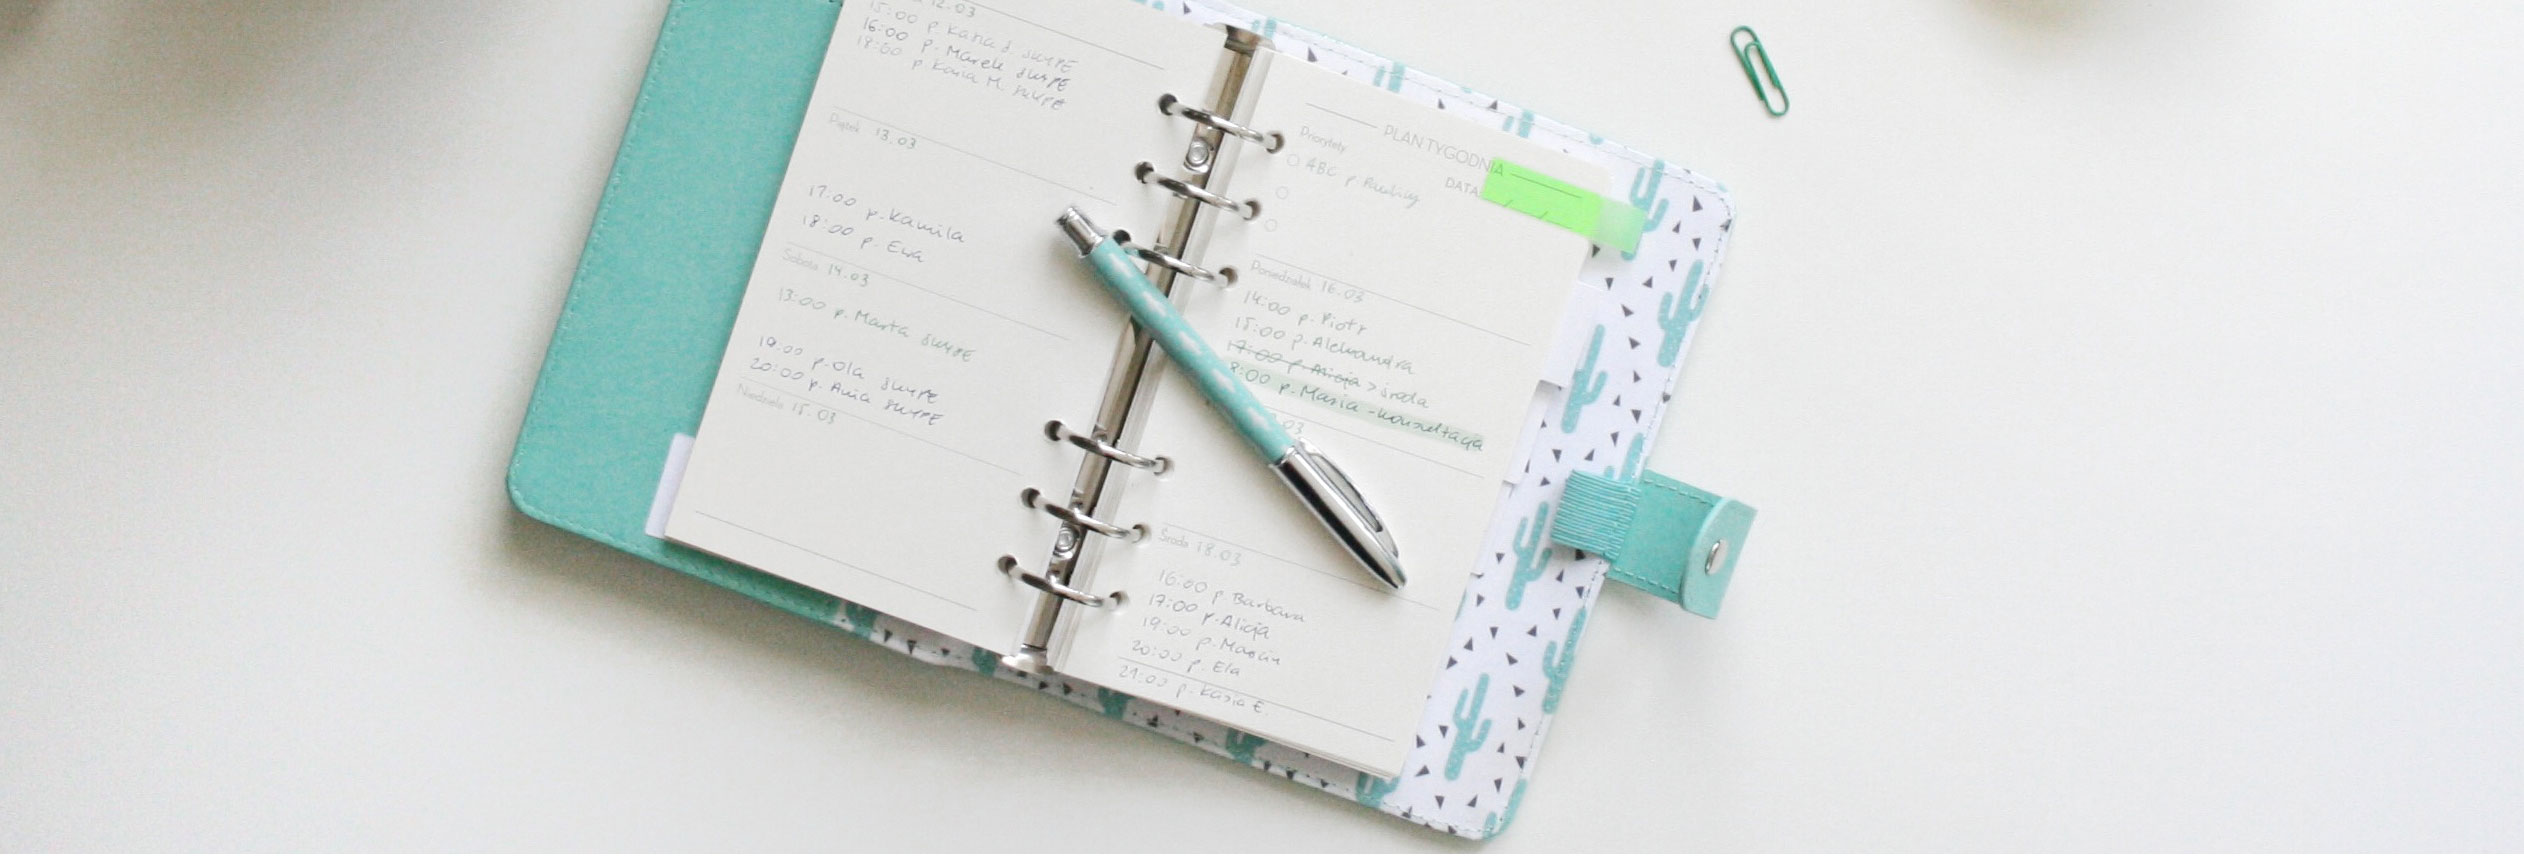 12.03
15:00 p. Kasia J. SKYPE
16:00 p. Marek SKYPE
18:00 p. Kasia M. SKYPE
Piątek 13.03
17:00 p. Kamila
18:00 p. Ewa
Sobota 14.03
13:00 p. Marta SKYPE
19:00 p. Ola SKYPE
20:00 p. Ania SKYPE
Niedziela 15.03
PLAN TYGODNIA
Priorytety
DATA / /
ABC p. Pauliny
Poniedziałek 16.03
14:00 p. Piotr
15:00 p. Aleksandra
17:00 p. Alicja > środa
8:00 p. Masia - konsultacja
03
Środa 18.03
16:00 p. Barbara
17:00 p. Alicja
19:00 p. Marcin
20:00 p. Ela
21:00 p. Kasia E.